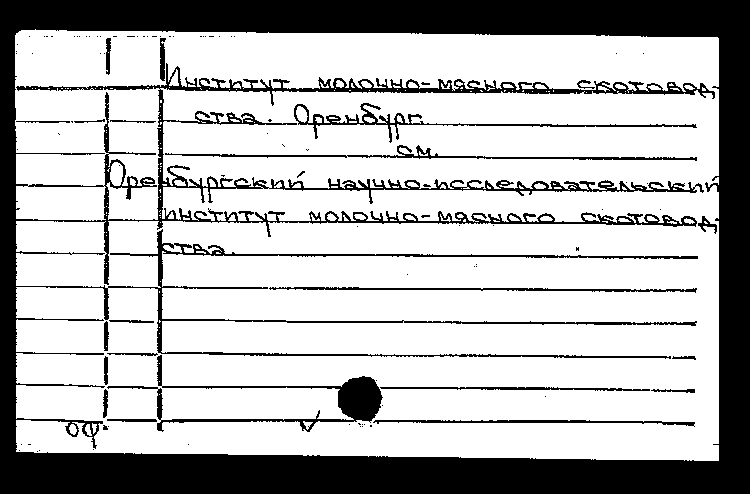 Институт молочно-мясного скотовод-
ства. Оренбург.
см.
Оренбургский научно-исследовательский
институт молочно-мясного скотовод-
ства.
оф. ✓